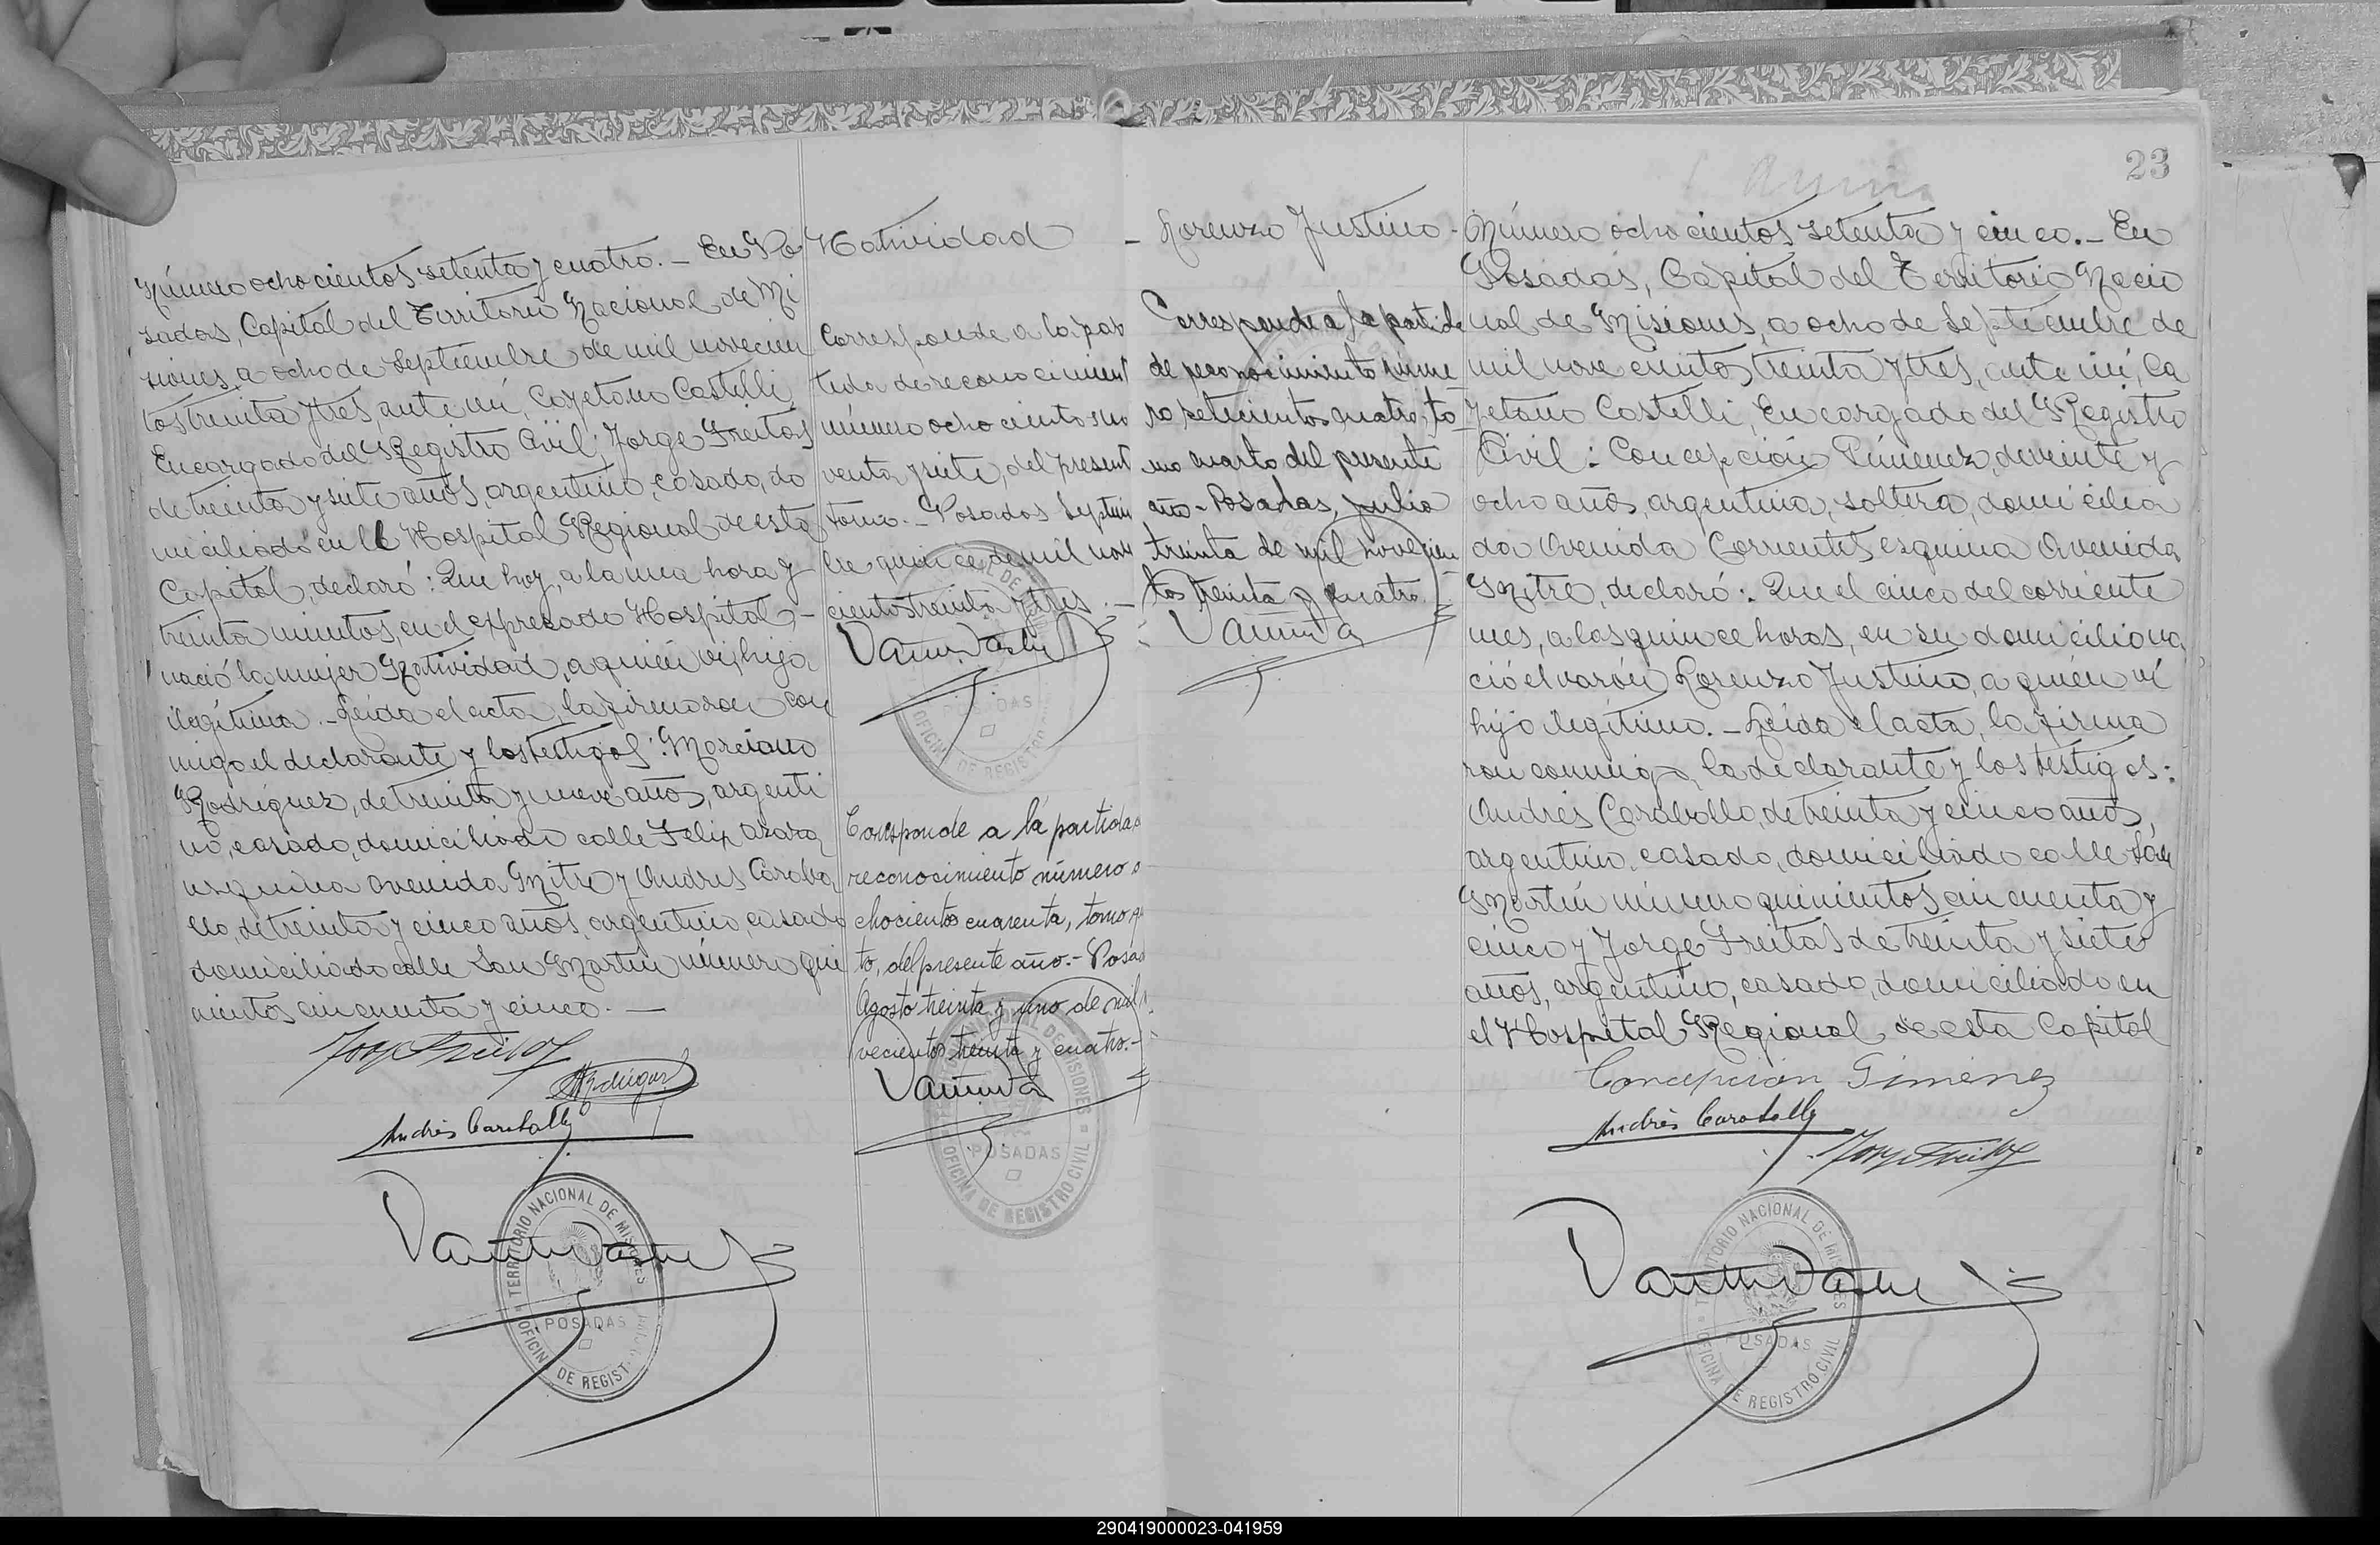 Número ochocientos setenta y cuatro. - En Po
sadas, Capital del Territorio Nacional de Mi
siones, a ocho de Septiembre de mil novecien
tos treinta y tres, ante mí, Cayetano Castelli,
Encargado del Registro Civil; Jorge Freitas,
de treinta y siete años, argentino, casado, do
miciliado en el Hospital Regional de esta
Capital, declaró: Que hoy, a la una hora y
treinta minutos, en el expresado Hospital -
nació la mujer Natividad, a quién ví, hija
ilegítima. - Leída el acta, la firmaron con
migo el declarante y los testigos: Marciano
Rodríguez, de treinta y nueve años, argenti
no, casado, domiciliado calle Felix Azara
esquina avenida Mitre y Andres Caraba
llo, de treinta y cinco años, argentino, casado
domiciliado calle San Martín número qui
nientos cincuenta y cinco. -
Jorge Freitas
Andrés Caraballo
TERRITORIO NACIONAL DE MISIONES
POSADAS
OFICINA DE REGISTRO CIVIL
Natividad
Corresponde a la par
tida de reconocimient
número ochocientos no
venta y siete, del present
tomo. - Posadas Septiem
bre quince de mil nove
cientos treinta y tres. -
POSADAS
Corresponde a la partida d
reconocimiento número o
chocientos cuarenta, tomo
to, del presente año. - Posad
Agosto treinta y uno de mil n
vecientos treinta y cuatro. -
POSADAS
OFICINA DE REGISTRO CIVIL
- Lorenzo Justino -
Corresponde a la partida
de reconocimiento núme
ro setecientos cuatro, to
mo cuarto del presente
año - Posadas, Julio
treinta de mil novecien
tos treinta y cuatro
23
Número ochocientos setenta y cinco. - En
Posadas, Capital del Territorio Nacio
nal de Misiones, a ocho de Septiembre de
mil novecientos treinta y tres, ante mí, Ca
yetano Castelli, Encargado del Registro
Civil: Concepción Jiménez, de veinte y
ocho años, argentina, soltera, domicilia
da Avenida Corrientes esquina Avenida
Mitre, declaró: Que el cinco del corriente
mes, a las quince horas, en su domicilio na
ció el varón Lorenzo Justino, a quién ví
hijo ilegítimo. - Leída el acta, la firma
ron conmigo, la declarante y los testigos:
Andrés Caraballo, de treinta y cinco años,
argentino, casado, domiciliado calle San
Martín número quinientos cincuenta y
cinco y Jorge Freitas de treinta y siete
años, argentino, casado, domiciliado en
el Hospital Regional de esta Capital
Concepción Giménez
Andrés Caraballo
Jorge Freitas
TERRITORIO NACIONAL DE MISIONES
POSADAS
OFICINA DE REGISTRO CIVIL
290419000023-041959